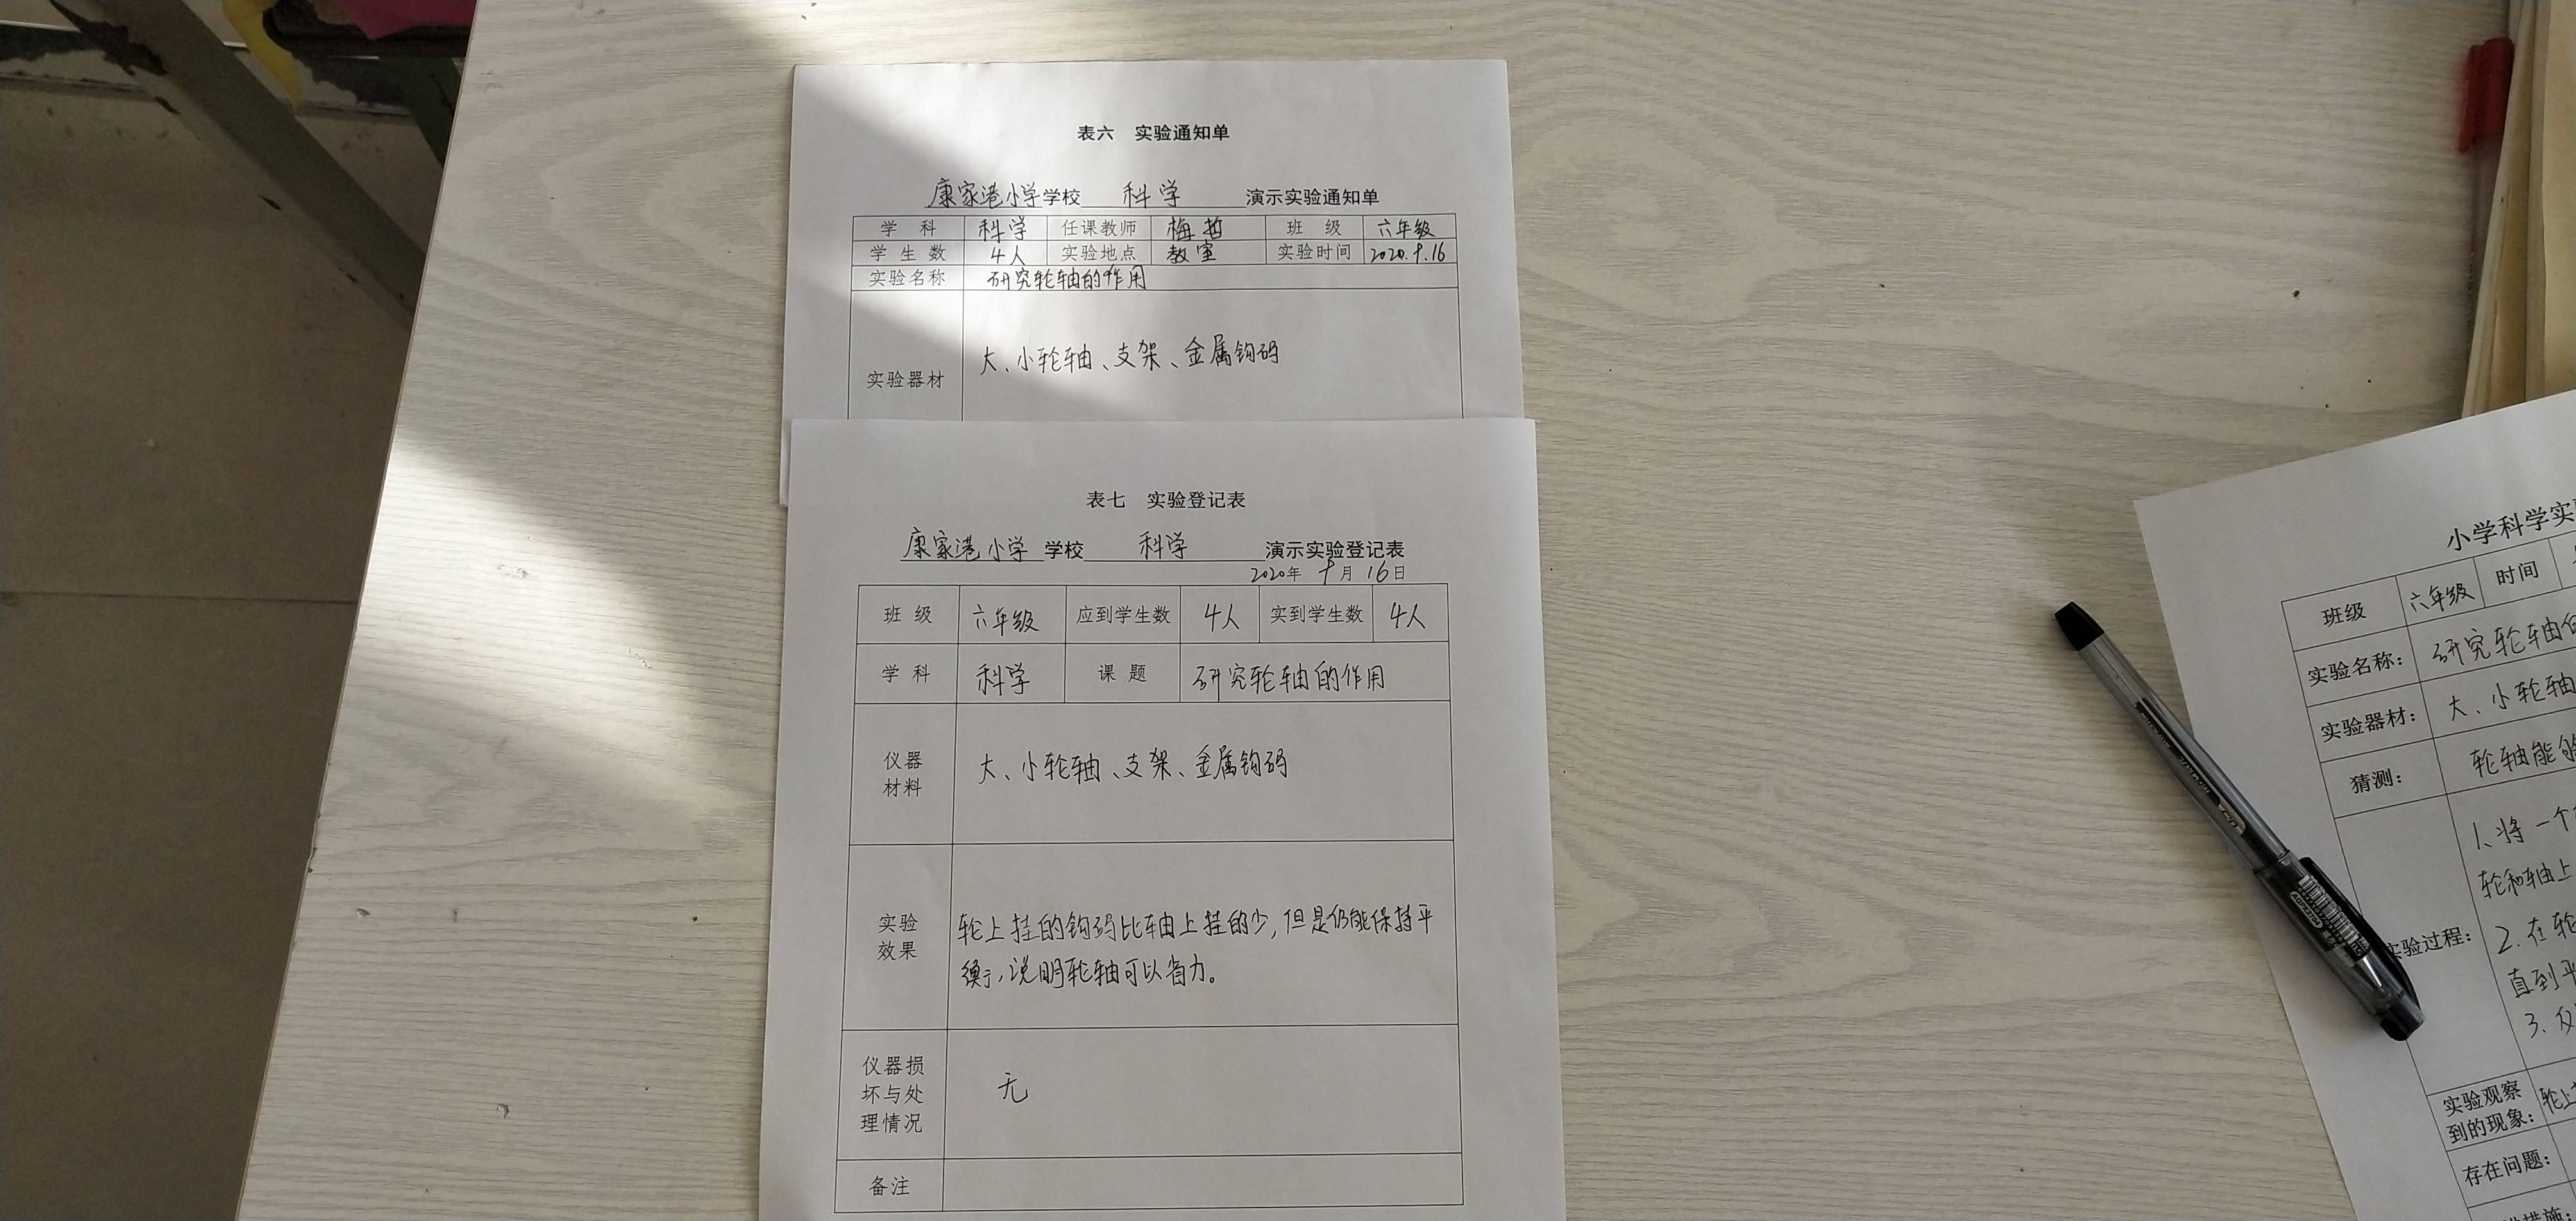 表六 实验通知单
康家港小学学校 科学 演示实验通知单
学 科 科学 任课教师 梅哲 班 级 六年级
学 生 数 4人 实验地点 教室 实验时间 2020.9.16
实验名称 研究轮轴的作用
实验器材 大、小轮轴、支架、金属钩码
表七 实验登记表
康家港小学 学校 科学 演示实验登记表
2020年 9月 16日
班 级 六年级 应到学生数 4人 实到学生数 4人
学 科 科学 课 题 研究轮轴的作用
仪器
材料
大、小轮轴、支架、金属钩码
实验
效果
轮上挂的钩码比轴上挂的少,但是仍能保持平
衡,说明轮轴可以省力。
仪器损
坏与处
理情况
无
备注
小学科学实
班级 六年级 时间
实验名称: 研究轮轴
实验器材: 大、小轮轴
猜测: 轮轴能
实验过程:
1、将一个
轮和轴上
2.在轮
直到平
3.
实验观察
到的现象:
轮上
存在问题:
措施: